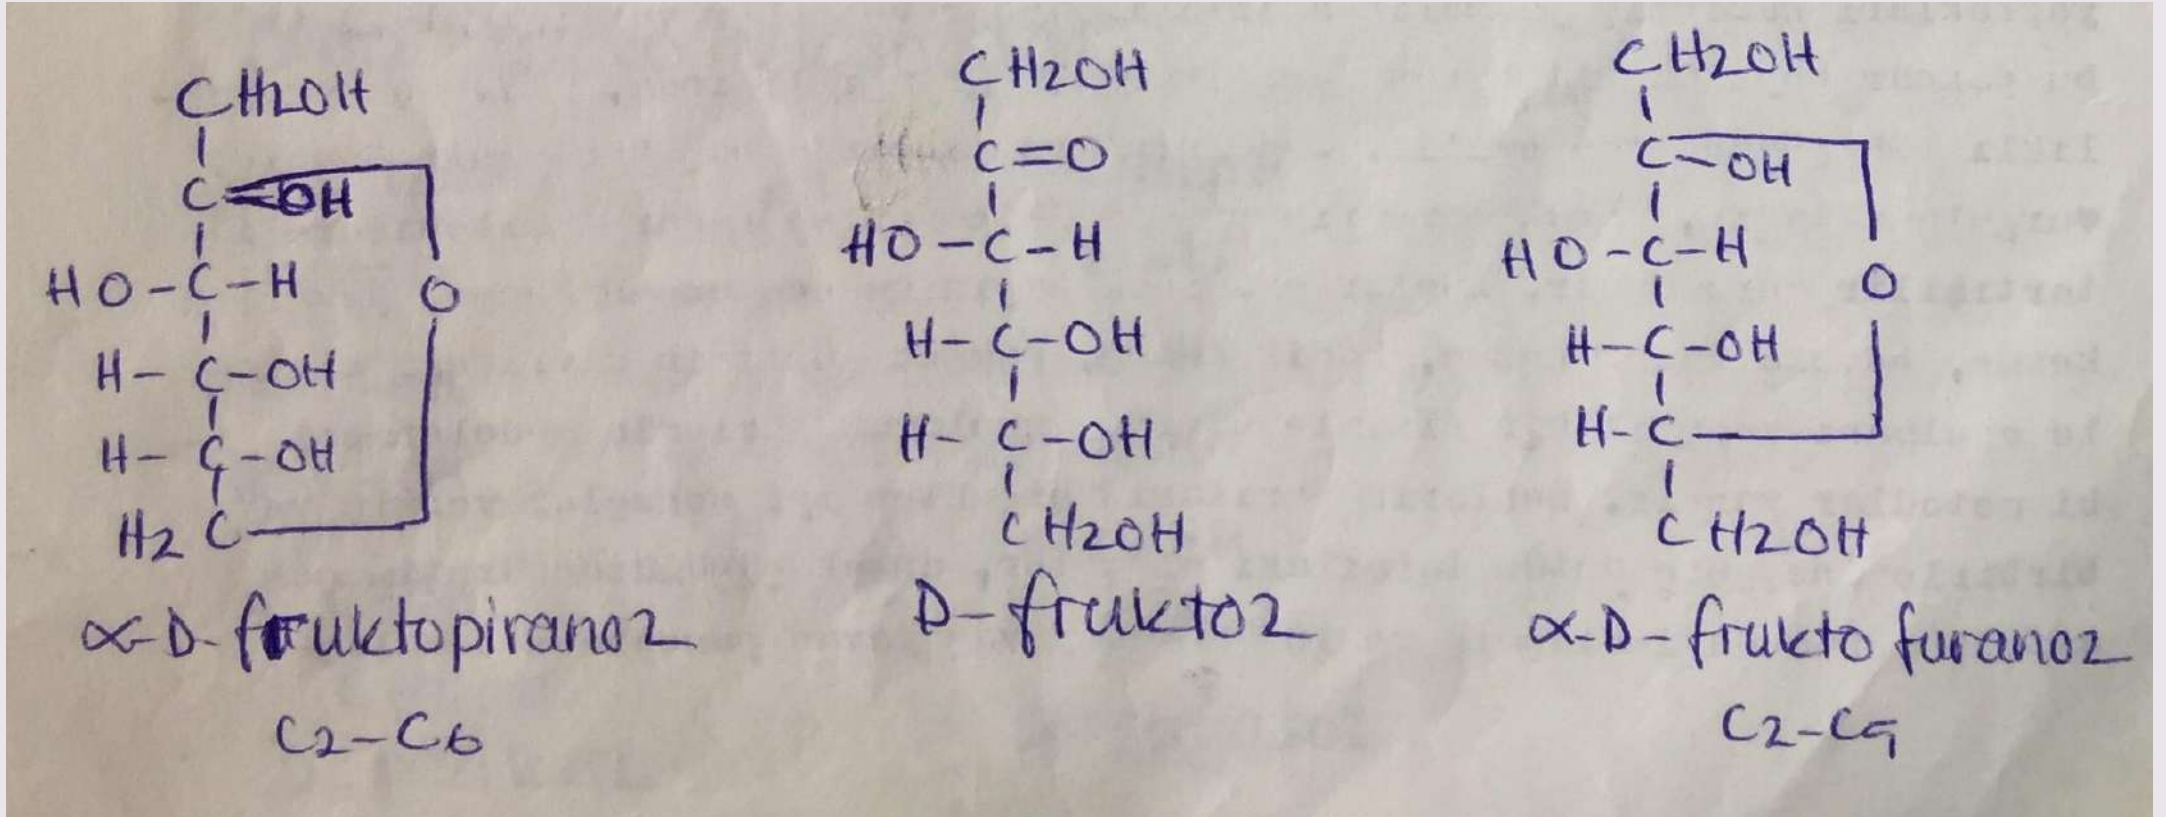 CH2OH
C-OH
HO-C-H O
H-C-OH
H-C-OH
H2C
α-D-fruktopiranoz
C2-C6
CH2OH
C=O
HO-C-H
H-C-OH
H-C-OH
CH2OH
D-fruktoz
CH2OH
C-OH
HO-C-H O
H-C-OH
H-C
CH2OH
α-D-frukto furanoz
C2-C5